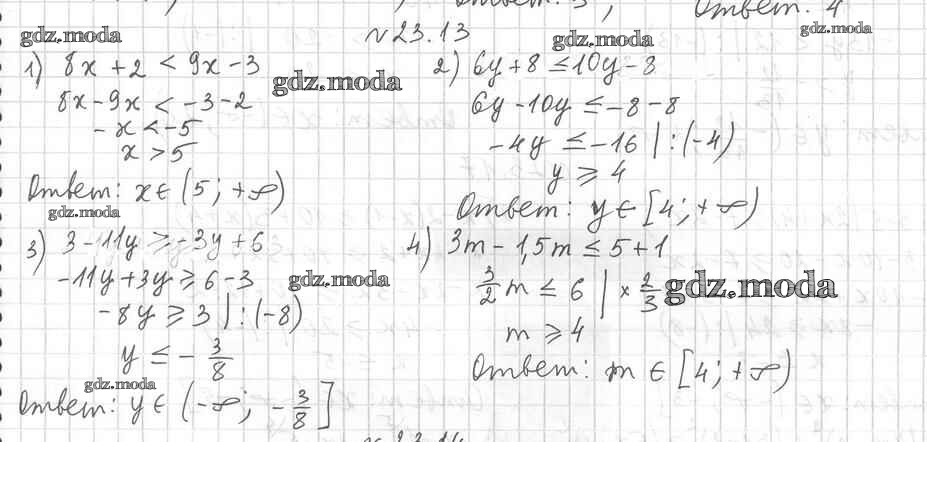 Ответ: 4
№23.13
gdz.moda
gdz.moda
gdz.moda
1) 8x + 2 < 9x - 3
gdz.moda
8x - 9x < -3 - 2
- x < -5
x > 5
Ответ: x ∈ (5; +∞)
gdz.moda
2) 6y + 8 ≤ 10y - 8
6y - 10y ≤ -8 - 8
-4y ≤ -16 | : (-4)
y ⩾ 4
Ответ: y ∈ [4; +∞)
3) 3 - 11y ⩾ -3y + 6
-11y + 3y ⩾ 6 - 3
gdz.moda
-8y ⩾ 3 | : (-8)
y ≤ - 3/8
gdz.moda
Ответ: y ∈ (-∞; - 3/8]
4) 3m - 1,5m ≤ 5 + 1
3/2 m ≤ 6 | × 2/3
gdz.moda
m ⩾ 4
Ответ: m ∈ [4; +∞)